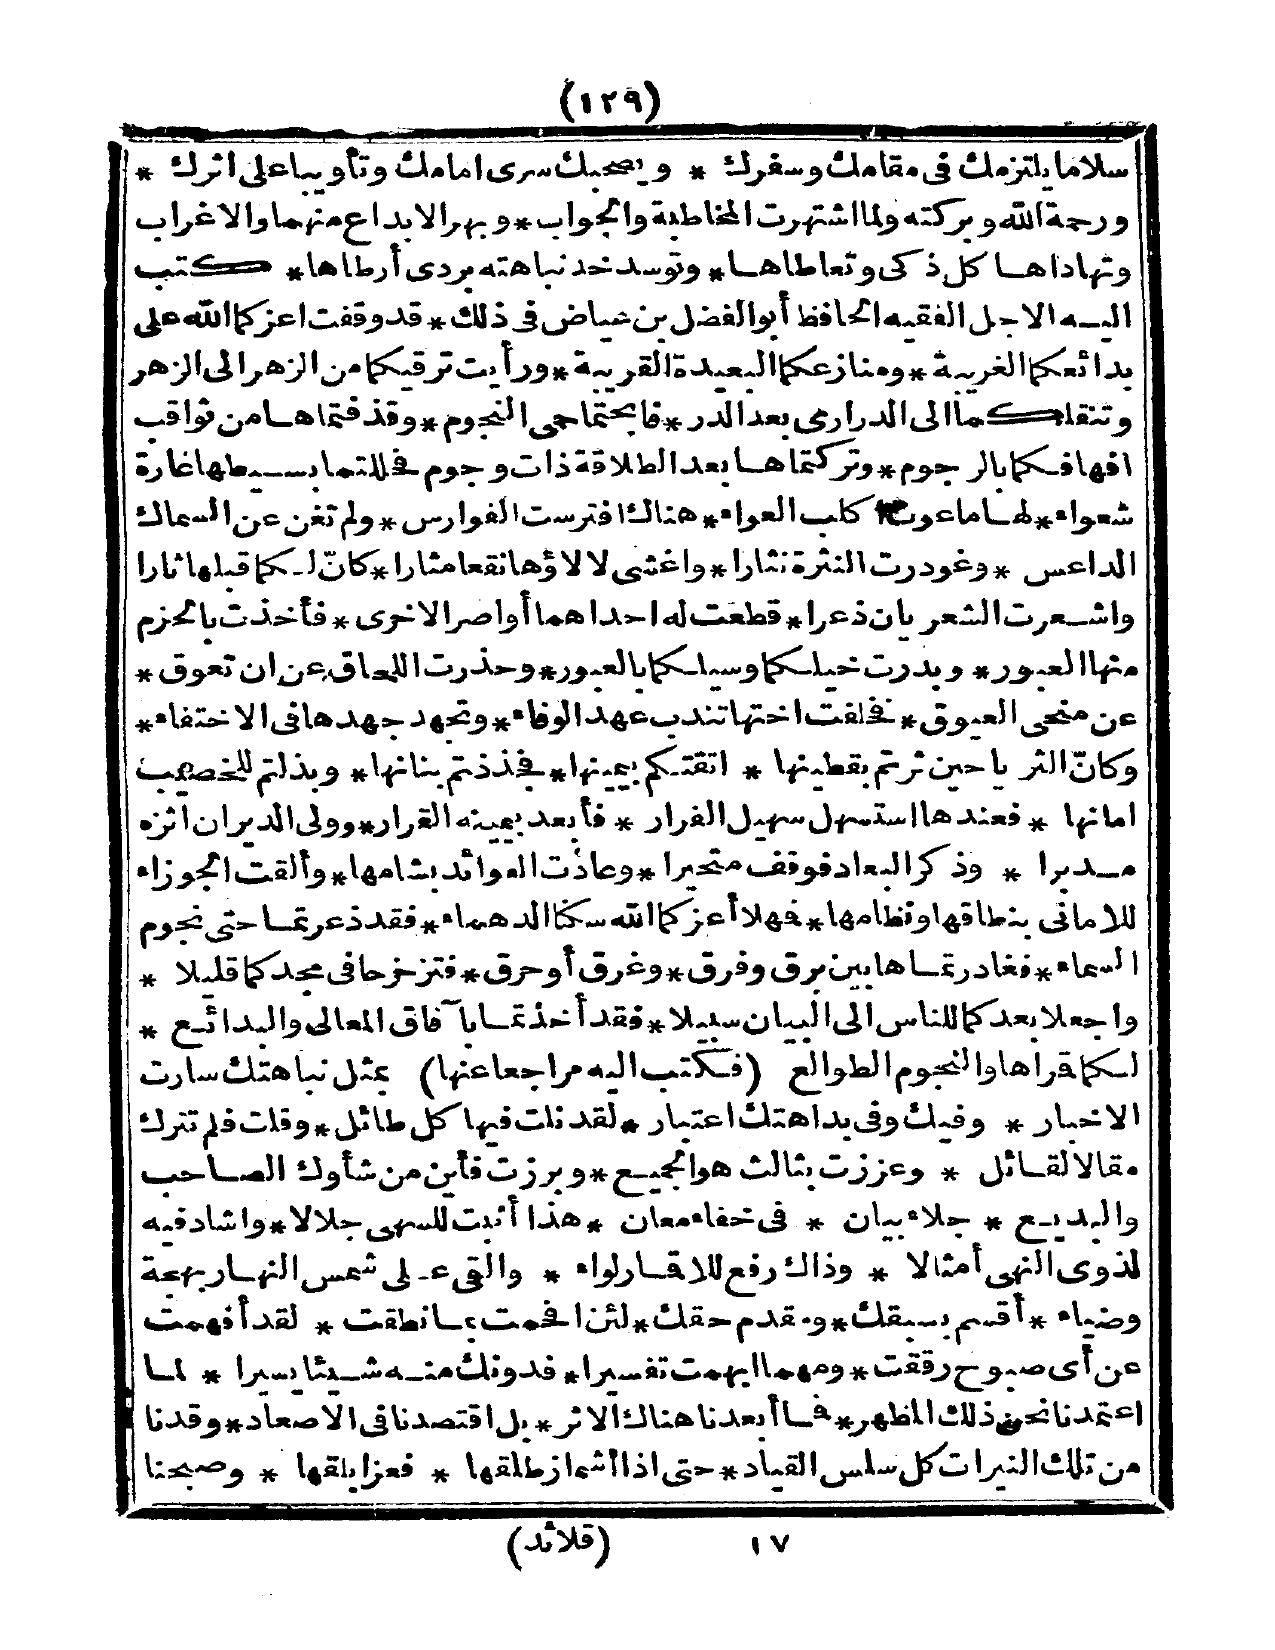 (١٢٩)
سلاما يلتزمك فى مقامك وسفرك * ويصحبك سرى امامك وتأويبا على اثرك *
ورحمة الله وبركته ولما اشتهرت المخاطبة والجواب * وبهر الابداع منهما والاغراب
وتهاداها كل ذكى وتعاطاها * وتوسد خد نباهته بردى أرطاها * كتب
اليه الاجل الفقيه الحافظ أبو الفضل بن عياض فى ذلك * قد وقفت اعزكما الله على
بدائعكما الغريبة * ومنازعكما البعيدة القريبة * ورأيت ترقيكما من الزهر الى الزهر
وتنقلكما الى الدرارى بعد الدر * فابحتما حمى النجوم * وقذفتماها من ثواقب
افهامكما بالرجوم * وتركتماها بعد الطلاقة ذات وجوم فحللتما بسيطها غارة
شعواء * لها ما عوت كلب العواء * هناك افترست الفوارس * ولم تغن عن السماك
الداعس * وغودرت النثرة نثارا * واغشى لالاؤها نقعا مثارا * كانّ لكما قبلها ثارا
واشعرت الشعريان ذعرا * قطعت له احداهما أواصر الاخرى * فأخذت بالحزم
منها العبور * وبدرت خيلكما وسيلكما بالعبور * وحذرت اللحاق عن ان تعوق *
عن منحى العيوق * فخلفت اختها تندب عهد الوفاء * وتجهد جهدها فى الاختفاء *
وكانّ الثريا حين ثرتم بقطينها * اتقتكم بيمينها * فجذذتم بنانها * وبذلتم للخضيب
امانها * فعندها استسهل سهيل الفرار * فأبعد بيمينه القرار * وولى الدبران اثره
مدبرا * وذكر البعاد فوقف متحيرا * وعاذت العوائد بشامها * وألقت الجوزاء
للامانى بنطاقها ونظامها * فهلا أعزكما الله سكنتما الدهماء * فقد ذعرتما حتى نجوم
السماء * فغادرتماها بين برق وفرق * وغرق أو حرق * فتزحزحا فى مجدكما قليلا *
واجعلا بعدكما للناس الى البيان سبيلا * فقد أخذتما بآفاق المعالى والبدائع *
لكما قمراها والنجوم الطوالع (فكتب اليه مراجعا عنها) بمثل نباهتك سارت
الاخبار * وفيك وفى بداهتك اعتبار * لقد نلت فيها كل طائل * وقلت فلم تترك
مقالا لقائل * وعززت بثالث هو الجميع * وبرزت فأين من شأوك الصاحب
والبديع * جلاء بيان * فى خفاء معان * هذا أثبت للسهى جلالا * واشاد فيه
لذوى النهى أمثالا * وذاك رفع للاقمار لواء * والقى على شمس النهار بهجة
وضياء * أقسم بسبقك * وتقدم حقك * لئن افحمت بما نطقت * لقد أفهمت
عن أى صبوح رققت * ومهما ابهمت تفسيرا * فدونك منه شيئا يسيرا * لما
اعتمدنا نحن ذلك المظهر * فما أبعدنا هناك الاثر * بل اقتصدنا فى الاصعاد * وقدنا
من تلك النيرات كل سلس القياد * حتى اذا اشماز طلقها * فعزا بلقها * وصبحنا
١٧ (قلائد)